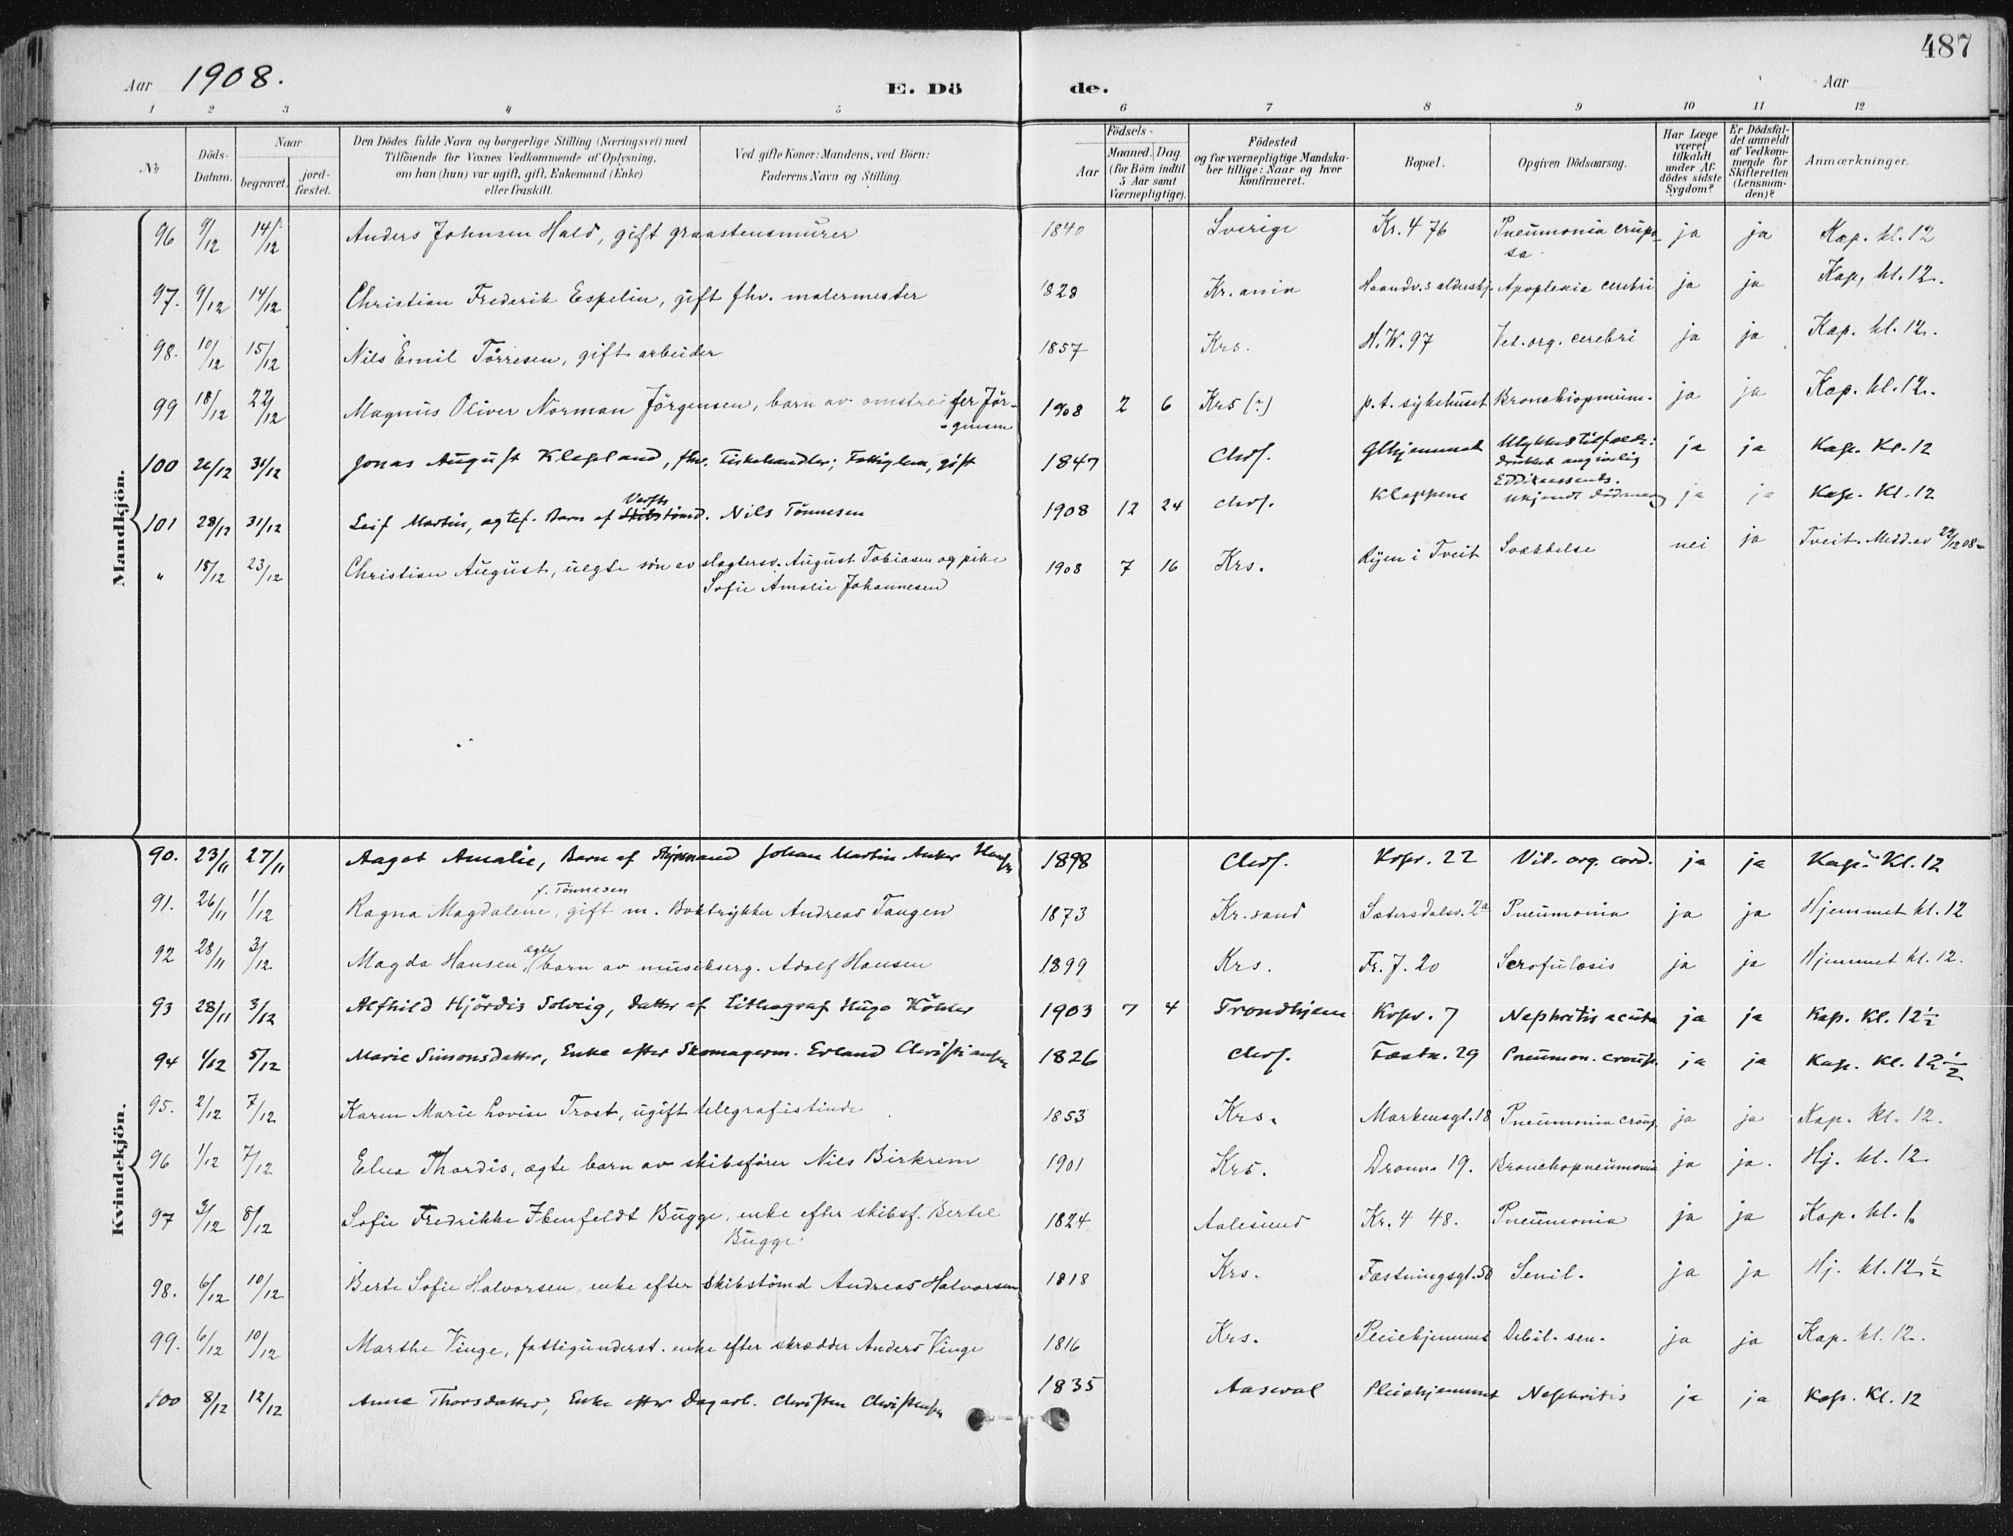 487
Aar 1908. E. Dö de. Aar
1 2 3 4 5 6 7 8 9 10 11 12
No
Döds-Datum.
Naar
begravet. jord-fæstet.
Den Dödes fulde Navn og borgerlige Stilling (Næringsvei) med
Tilföiende for Voxnes Vedkommende af Oplysning,
om han (hun) var ugift, gift, Enkemand (Enke)
eller fraskilt.
Ved gifte Koner: Mandens, ved Börn:
Faderens Navn og Stilling.
Födsels-
Aar
Maaned. Dag
(for Börn indtil
5 Aar samt
Værnepligtige).
Födested
og for værnepligtige Mandska-
ber tillige: Naar og hvor
konfirmeret.
Bopæl.
Opgiven Dödsaarsag.
Har Læge
været
tilkaldt
under Af-
dödes sidste
Sygdom?
Er Dödsfal-
det anmeldt
af Vedkom-
mende for
Skifteretten
(Lensman-
den)?
Anmærkninger.
Mandkjön.
96 9/12 14/12 Anders Johnsen Hald, gift graastensmurer 1840 Sverige Kr. 4 76 Pneumonia crupo-
sa. ja ja Kap. kl. 12
97. 9/12 14/12 Christian Frederik Espelin, gift fhv. malermester 1828 Kr.ania Haandv.s aldershj. Apoplexia cerebri ja ja Kap. kl. 12.
98. 10/12 15/12 Nils Emil Törresen, gift arbeider 1857 Krs. H. W. 97 Vet. org. cerebri ja ja Kap. kl. 12.
99 18/12 22/12 Magnus Oliver Norman Jörgensen, barn av omstreifer Jör-
gensen 1908 2 6 Krs (?) p.t. sykehuset Bronchiopneum. ja ja Kap. kl. 12.
100 26/12 31/12 Jonas August Klepland, fhv. Fiskehandler; Fattiglem, gift 1847 Chrs. Glhjemmet Ulykkestilfælde:
drukket angivelig
Eddikessents. ja ja Kap. Kl. 12
101 28/12 31/12 Leif Martin, ægtef. Barn af Verfts tömd. Nils Tönnesen 1908 12 24 Chrs. Kleppene ukjendt Dödsaarsag ja ja Kap. Kl. 12
" 18/12 23/12 Christian August, uegte sön av slagtersv. August Tobiasen og pike
Sofie Amalie Johannesen 1908 7 16 Krs. Ryen i Tveit Svækkelse nei ja Tveit. Medd. av 24/12 08
Kvindekjön.
90. 23/11 27/11 Aagot Amalie, Barn af Styrmand Johan Martin Anker Hansen 1898 Chrs. Krpr. 22 Vit. org. cord. ja ja Kap. Kl. 12
91. 26/11 1/12 Ragna Magdalene, f. Tönnesen gift m. Boktrykker Andreas Tangen 1873 Kr.sand Sætersdalsv. 2a Pneumonia ja ja Hjemmet kl. 12
92 28/11 3/12 Magda Hansen, ægte barn av musikserg. Adolf Hansen 1899 Krs. Fr. J. 20 Scrofulosis ja ja Hjemmet kl. 12.
93 28/11 3/12 Alfhild Hjördis Solveig, datter af Lithograf Hugo Köhler 1903 7 4 Trondhjem Krpr. 7 Nephritis acuta ja ja Kap. Kl. 12½
94 1/12 5/12 Marie Simonsdatter, Enke efter Skomagerm. Erland Christiansen 1826 Chrs. Fæstn. 29 Pneumon. croup. ja ja Kap. Kl. 12½
95. 2/12 7/12 Karen Marie Lovise Trost, ugift telegrafistinde 1853 Krs. Markensgt. 18 Pneumonia croup. ja ja Kap. kl. 12.
96 1/12 7/12 Elna Thordis, ægte barn av skibsförer Nils Birkrem 1901 Krs. Dronn. 19. Bronchopneumonia ja ja. Hj. kl. 12.
97 3/12 8/12 Sofie Fredrikke Ibenfeldt Bugge, enke efter skibsf. Bertel
Bugge 1824 Aalesund Kr. 4 48. Pneumonia ja ja Kap. kl. 1.
98. 6/12 10/12 Berte Sofie Halvorsen, enke efter skibstömd Andreas Halvorsen 1818 Krs. Fæstningsgt. 50 Senil. ja ja Hj. kl. 12½
99. 6/12 10/12 Marthe Vinge, fattigunderst. enke efter skrædder Anders Vinge 1816 Krs. Pleiehjemmet Debil. sen. ja ja Kap. kl. 12.
100 8/12 12/12 Anna Thorsdatter, Enke efter Dagarb. Christen Christensen 1835 Aaseral Pleiehjemmet Nephritis ja ja Kap. Kl. 12